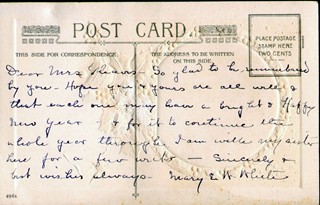 POST CARD
THIS SIDE FOR CORRESPONDENCE.
THE ADDRESS TO BE WRITTEN
ON THIS SIDE
PLACE POSTAGE
STAMP HERE
TWO CENTS
Dear Mrs. So glad to be remembered
by you. Hope you & yours are all well &
that each one may have a bright & Happy
New Year & for it to continue the
whole year through. I am with my sister
here for a few weeks — Sincerely &
best wishes always. Mary E. W. White